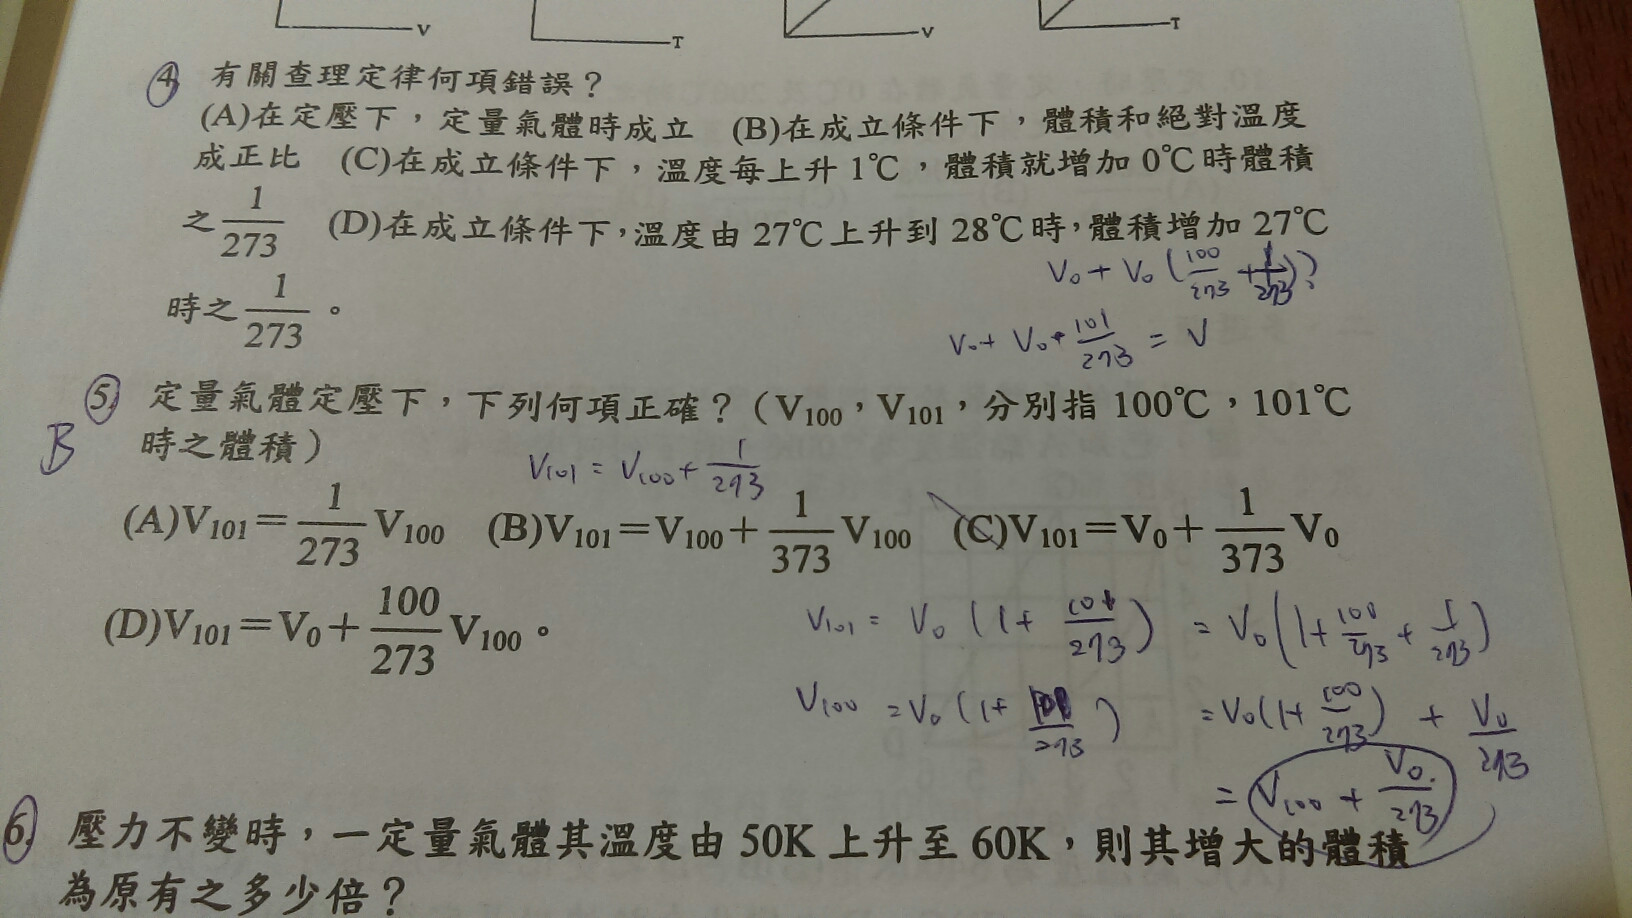 V T V T
4. 有關查理定律何項錯誤？
(A)在定壓下，定量氣體時成立 (B)在成立條件下，體積和絕對溫度
成正比 (C)在成立條件下，溫度每上升 1℃，體積就增加 0℃時體積
之 1/273 (D)在成立條件下，溫度由 27℃上升到 28℃時，體積增加 27℃
V₀ + V₀ (100/273 + 1/273)?
時之 1/273 。
V₀ + V₀ · 101/273 = V
5. 定量氣體定壓下，下列何項正確？（V₁₀₀，V₁₀₁，分別指 100℃，101℃
B
時之體積）
V₁₀₁ = V₁₀₀ + 1/273
(A)V₁₀₁＝1/273 V₁₀₀ (B)V₁₀₁＝V₁₀₀＋1/373 V₁₀₀ (C)V₁₀₁＝V₀＋1/373 V₀
(D)V₁₀₁＝V₀＋100/273 V₁₀₀。
V₁₀₁ = V₀ (1 + 101/273) = V₀ (1 + 100/273 + 1/273)
V₁₀₀ = V₀ (1 + 100/273) = V₀(1 + 100/273) + V₀/273
= V₁₀₀ + V₀/273
6. 壓力不變時，一定量氣體其溫度由 50K 上升至 60K，則其增大的體積
為原有之多少倍？